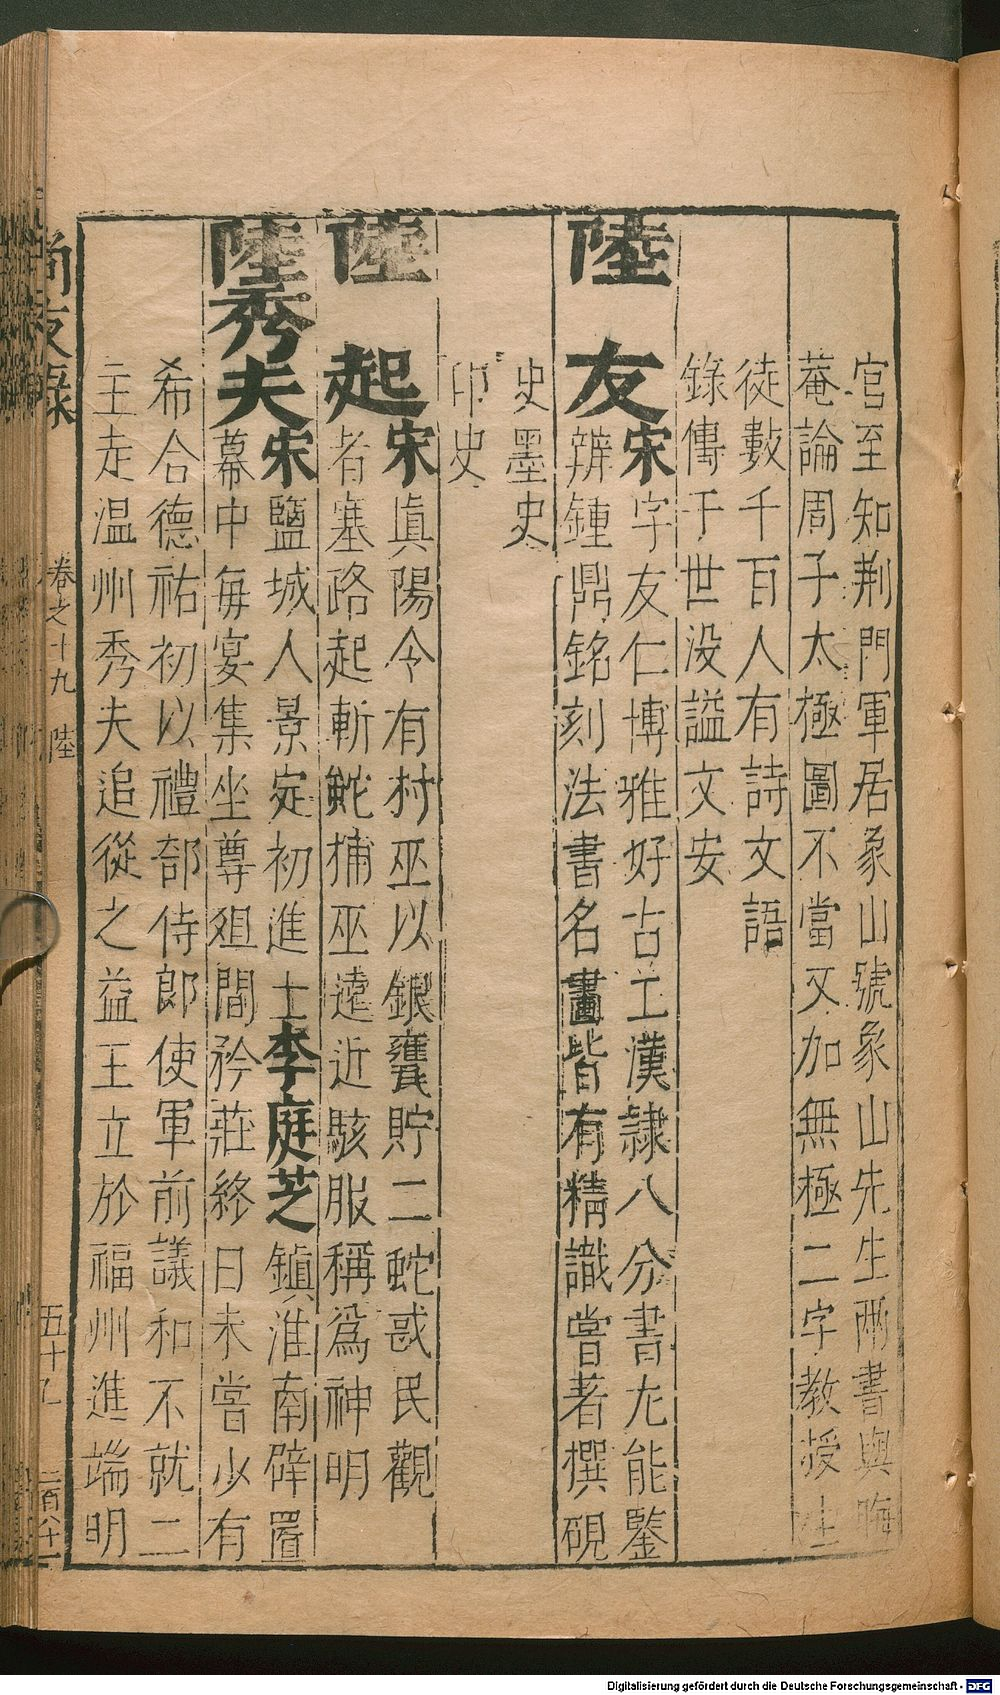 官至知荆門軍居象山號象山先生兩書與晦
菴論周子太極圖不當又加無極二字教授生
徒數千百人有詩文語
錄傳于世没謚文安
陸友宋字友仁博雅好古工漢隷八分書尤能鑒
辨鍾鼎銘刻法書名畫皆有精識嘗著撰硯
史墨史
印史
陸起宋真陽令有村巫以銀甕貯二蛇惑民觀
者塞路起斬蛇捕巫遠近駭服稱爲神明
陸秀夫宋鹽城人景定初進士李庭芝鎮淮南辟置
幕中每宴集坐尊俎間矜莊終日未嘗少有
希合德祐初以禮部侍郎使軍前議和不就二
王走温州秀夫追從之益王立於福州進端明
尚友錄
卷之十九 陸
五十九
Digitalisierung gefördert durch die Deutsche Forschungsgemeinschaft - DFG